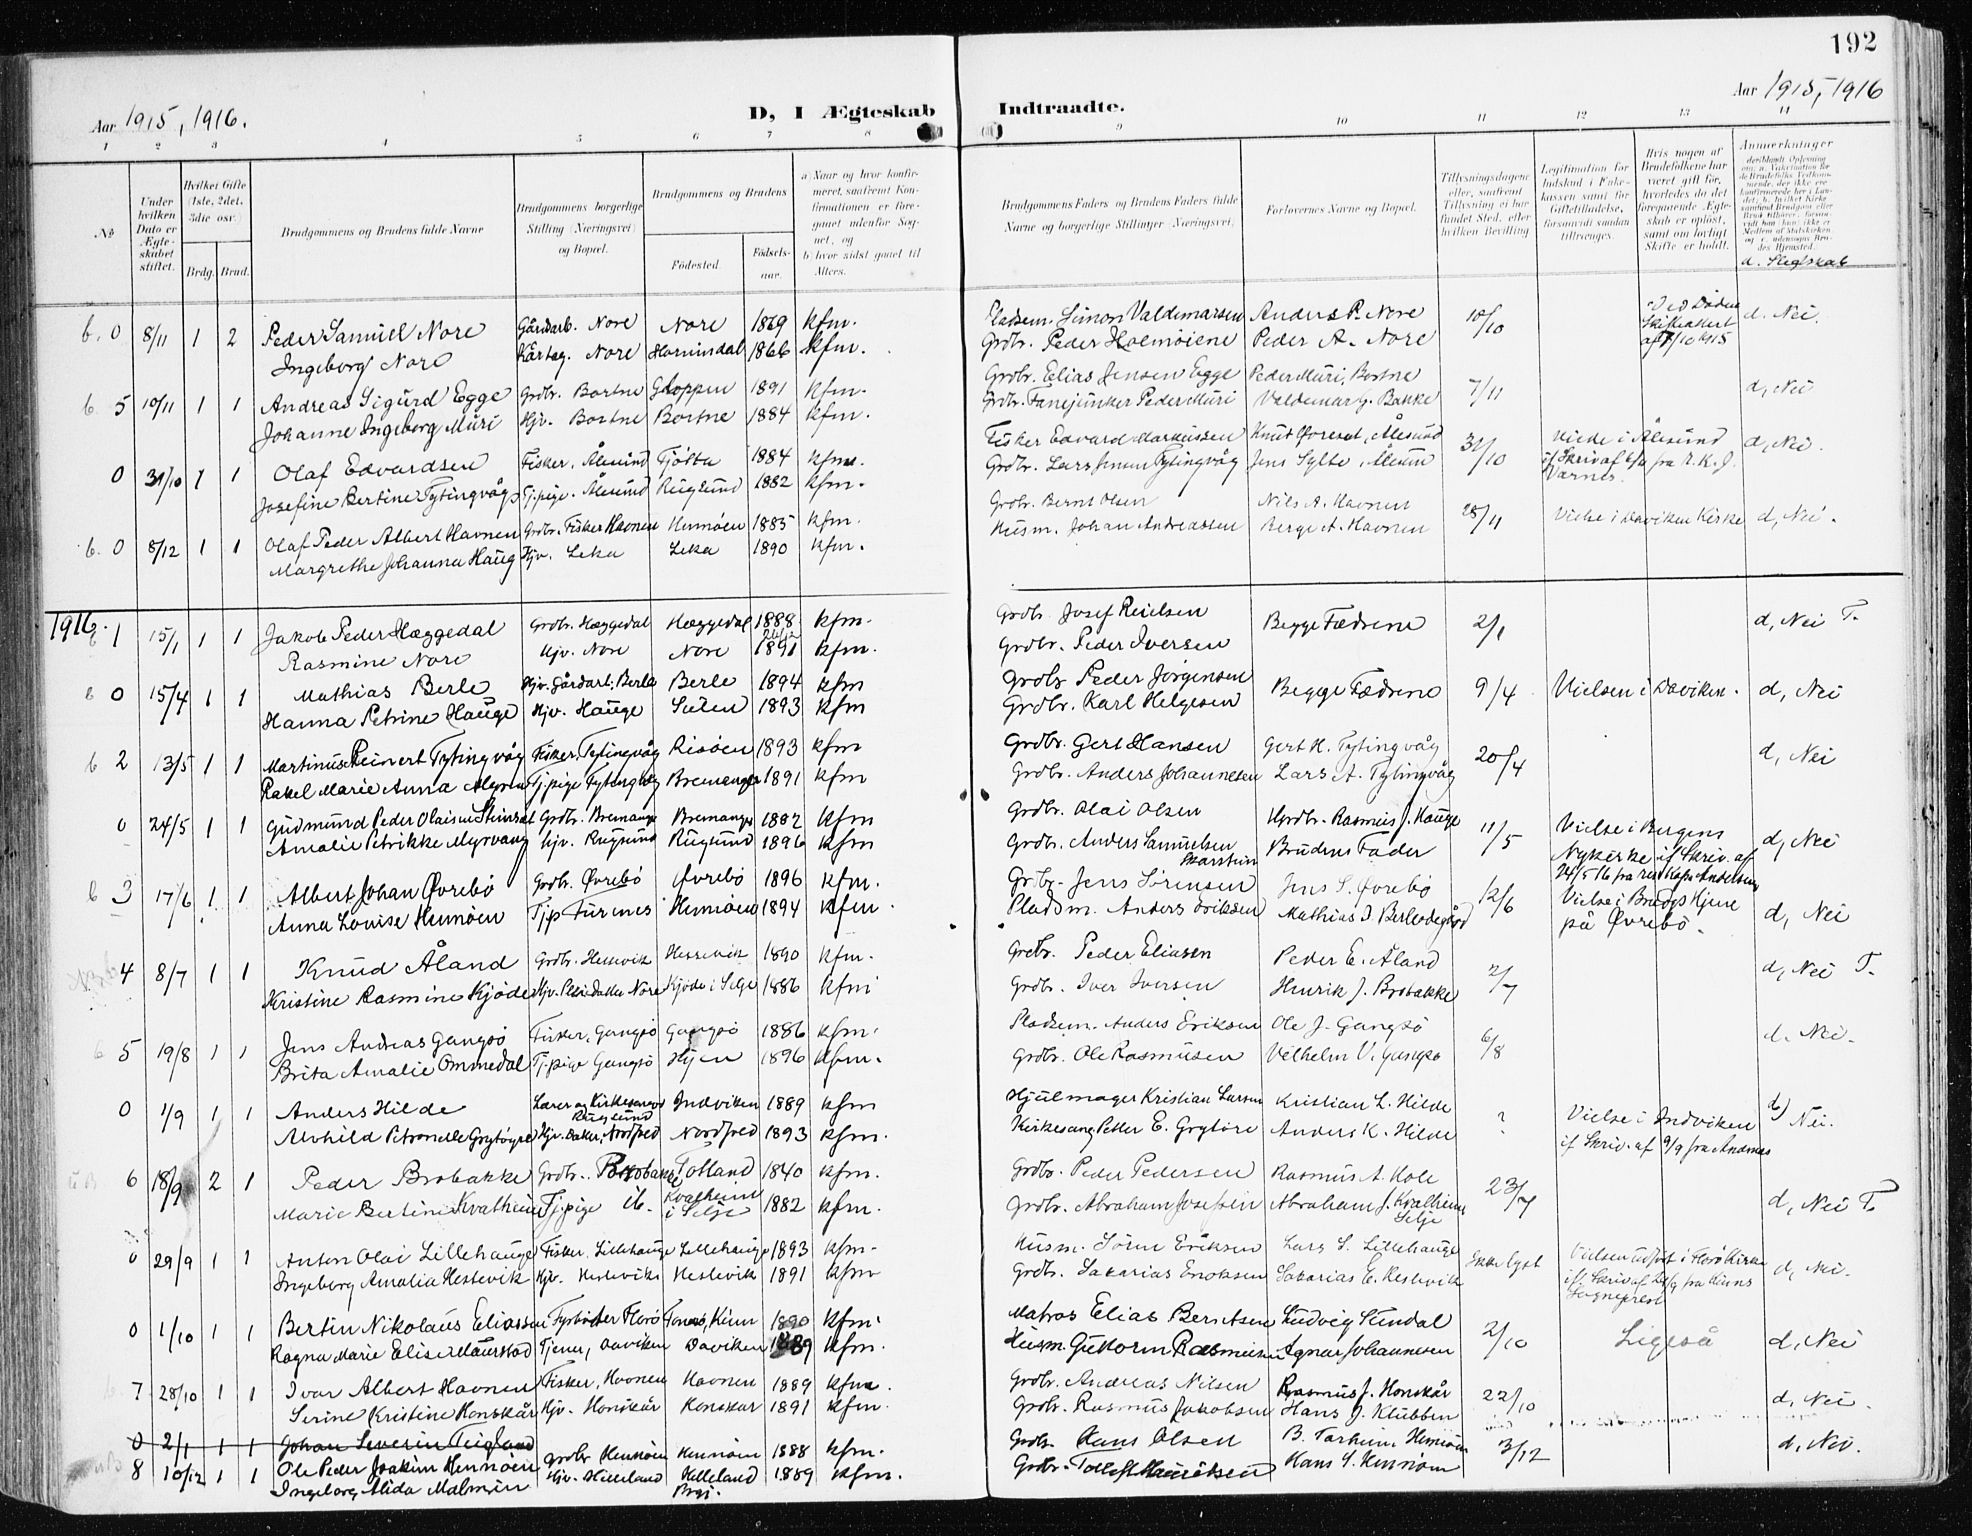 192
Aar 1915, 1916.
D, I Ægteskab Indtraadte.
Aar 1915, 1916
1 2 3 4 5 6 7 8 9 10 11 12 13 14
No
Under hvilken Dato er Ægteskabet stiftet.
Hvilket Gifte (1ste, 2det, 3die osv.)
Brdg. Brud.
Brudgommens og Brudens fulde Navne
Brudgommens borgerlige Stilling (Næringsvei) og Bopæl.
Brudgommens og Brudens
Fødested. Fødselsaar.
a) Naar og hvor konfirmeret, saafremt Konfirmationen er foregaaet udenfor Sognet, og
b) hvor sidst gaaet til Alters.
Brudgommens Faders og Brudens Faders fulde Navne og borgerlige Stillinger (Næringsvei).
Forlovernes Navne og Bopæl.
Tillysningsdagene eller, saafremt Tillysning ei har fundet Sted, efter hvilken Bevilling
Legitimation for Indskud i Enkekassen samt for Giftetilladelse, forsaavidt saadan tiltrænges.
Hvis nogen af Brudefolkene har været gift før, hvorledes da det foregaaende Ægteskab er opløst, samt om lovligt Skifte er holdt.
Anmerkninger
d. Slegtskab
b. 0 8/11 1 2 Peder Samuel Nore Gårdarb. Nore Nore 1869 kfm. Pladsm. Simon Valdemarsen Anders P. Nore 10/10 d. Nei.
Ingeborg Nore Kårtag. Nore Hornindal 1866 kfm. Grdbr. Peder Holmøiene Peder A. Nore
b. 5 10/11 1 1 Andreas Sigurd Egge Grdbr. Bortne Gloppen 1891 kfm. Grdbr. Elias Jensen Egge Peder Muri, Bortne 7/11 d, Nei
Johanne Ingeborg Muri Hjv. Bortne Bortne 1884 kfm. Grdbr. Fanejunker Peder Muri Valdemar G. Bakke
0 31/10 1 1 Olaf Edvardsen Fisker, Ålesund Tjøtta 1884 kfm. Fisker Edvard Markussen Knut Øvreset, Ålesund 31/10 Viede i Ålesund d, Nei.
Josefine Bertine Tytingvåg Tj.pige. Ålesund Rugsund 1882 kfm. Grdbr. Lars Jensen Tytingvåg Jens Sylte, Ålesund
b. 0 8/12 1 1 Olaf Peder Albert Havnen Grdbr. Fisker Havnen Hennøen 1885 kfm. Grdbr. Bernt Olsen Nils A. Havnen 28/11 Vielse i Daviken Kirke d, Nei.
Margrethe Johanna Haug Hjv. Leka Leka 1890 kfm. Husm. Johan Andreassen Berge A. Havnen
1916.
b 1 15/1 1 1 Jakob Peder Hæggedal Grdbr. Hæggedal Hæggedal 1888 kfm. Grdbr. Josef Reielsen Begge Fædrene 2/1 d, Nei T.
Rasmine Nore Hjv. Nore Nore 1891 kfm. Grdbr. Peder Iversen
b 0 15/4 1 1 Mathias Berle Hjv. Gårdarb. Berle Berle 1894 kfm Grdbr Peder Jørgensen Begge Fædrene 9/4 Vielsen i Daviken. d, Nei
Hanna Petrine Hauge Hjv. Hauge 1893 kfm Grdbr. Karl Helgesen
b 2 13/5 1 1 Martinus Reinert Tytingvåg Fisker, Tytingvåg Risøen 1893 kfm Grdbr. Gert Hansen Gert H. Tytingvåg 20/4 d, Nei
Rakel Marie Anna Tj.pige Tytingvåg Bremanger 1891 kfm Grdbr. Anders Johannesen Lars A. Tytingvåg
0 24/5 1 1 Gudmund Peder Olaisen Steinset Grdbr. Bremanger Bremanger 1882 kfm Grdbr. Olai Olsen Grdbr. Rasmus J. Hauge 11/5 Vielse i Bergens d, Nei
Amalie Petrikke Myrvang Hjv. Rugsund Rugsund 1896 kfm Grdbr. Anders Samuelsen Skarstein Brudens Fader Nykirke if Skriv. af
b 3 17/6 1 1 Albert Johan Øvrebø Grdbr. Øvrebø Øvrebø 1896 kfm. Grdbr. Jens Sørensen Jens S. Øvrebø 12/6 Vielse i Brudgs Hjem d, Nei
Anna Lovise Hennøen Tj.p Furenes Hennøen 1894 kfm. Pladsm. Anders Eriksen Mathias D. Berlodegård på Øvrebø.
4 8/7 1 1 Knud Åland Grdbr. Hessevik Hessevik 1890 kfm. Grdbr. Peder Eliasen Peder E. Åland 2/7 d, Nei T.
Kristine Rasmine Kjøde Kjøde i Selje 1886 kfm Grdbr. Iver Iversen Henrik J. Brobakke
b 5 19/8 1 1 Jens Andreas Gangsø Fisker, Gangsø Gangsø 1886 kfm. Pladsm. Anders Eriksen Ole J. Gangsø 6/8 d. Nei.
Brita Amalie Ommedal Tj.pige Gangsø Hyen 1896 kfm. Grdbr. Ole Rasmusen Vilhelm V. Gangsø
0 1/9 1 1 Anders Hilde Lærer og Kirkesanger Rugsund Indviken 1889 kfm Hjulmager Kristian Larsen Kristian L. Hilde ? Vielse i Indviken d) Nei.
Alvhild Petronelle Grytøyra Nordfred 1893 kfm. Kirkesang Petter E. Grytøre Anders K. Hilde
6 18/9 2 1 Peder Brobakke Grdbr. Brobakke Totland 1840 kfm. Grdbr. Peder Pedersen Rasmus A. Hole 23/7 d, Nei T.
Marie Bertine Kvalheim Tj.pige ib. Kvalheim i Selje 1882 kfm. Grdbr. Abraham Josefsen Abraham J. Kvalheim Selje
0 29/9 1 1 Anton Olai Lillehauge Fisker, Lillehauge Lillehauge 1893 kfm. Husm. Sören Eriksen Lars S. Lillehauge Ikke lyst Vielsen udført i Florø Kirke d, Nei.
Ingeborg Amalia Hestevik Hjv. Hestevik Hestevik 1891 kfm Grdbr. Sakarias Enoksen Sakarias E. Hestevik Sogneprest
0 1/10 1 1 Bertin Nikolaus Eliassen Fyrbøter Florø Kinn 1890 kfm. Matros Elias Berntsen Ludvig Sundal 2/10 Ligeså d, Nei
Ragna Marie Elise Maurstad Tjener, Daviken Daviken 1889 kfm. Husm. Guttorm Rasmusen Agnar Johannesen
7 28/10 1 1 Ivar Albert Havnen Fisker, Havnen Havnen 1889 kfm. Grdbr. Andreas Nilsen Rasmus J. Honskår 22/10 d, Nei.
Serine Kristine Honskår Hjv. Honskår Honskår 1891 kfm. Grdbr. Rasmus Jakobsen Hans J. Klubben
0 2/1 1 1 Johan Severin Teigland
8 10/12 1 1 Ole Peder Joakim Hennøen Grdbr Hennøen Hennøen 1888 kfm. Grdbr. Hans Olsen B. Torheim Hennøen 3/12 d, Nei.
Ingeborg Alida Malmein Hjv. Hilleland Helleland 1889 kfm. Grdbr. Tollef Henriksen Hans S. Hennøen